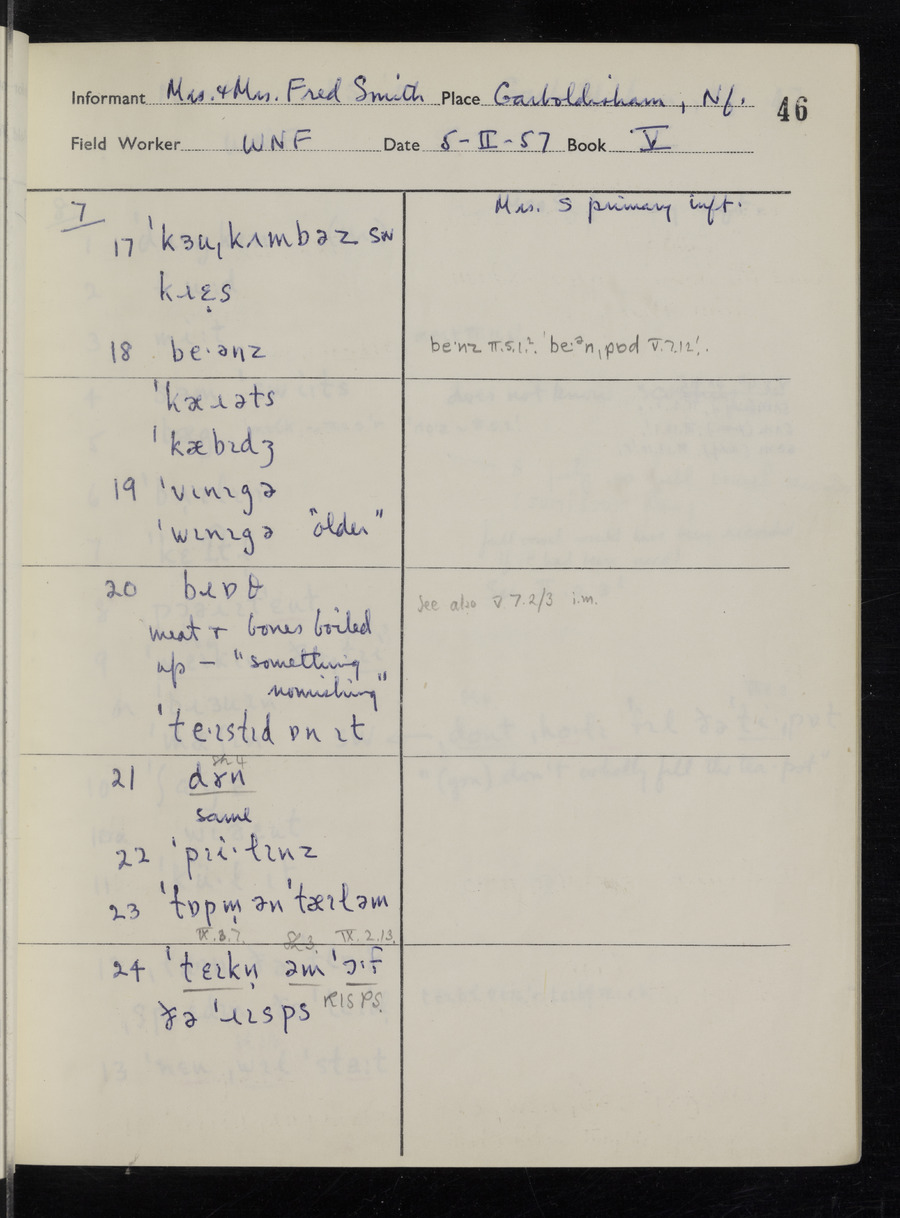 Informant Mrs. & Mrs. Fred Smith Place Garboldisham, Nf. 46
Field Worker WNF Date 5-II-57 Book V
Mrs. S primary inft.
7
17 ˈkɜu,kʌmbəz sw
kɹɛ̣s
18 be·ənz
be·nz II.5.1.² ˈbe:ᵊn,pɒd V.7.12ˡ.
ˈkæɹəts
ˈkæbɪdʒ
19 ˈvɪnɪgə
ˈwɪnɪgə "older"
20 bɹɒθ
See also V 7.2/3 i.m.
meat + bones boiled
up – "something
nourishing"
ˈtɛɪstɪd ɒn ɪt
sh 4
21 dɤn
same
22 ˈpɪi·lɪnz
23 ˈtɒpm̩ ən ˈtæɪləm
IX.3.7. Sh 3. IX.2.13.
24 ˈtɛɪkn̩ əm ˈɔːf
ðə ˈɹɪsps RISPS.